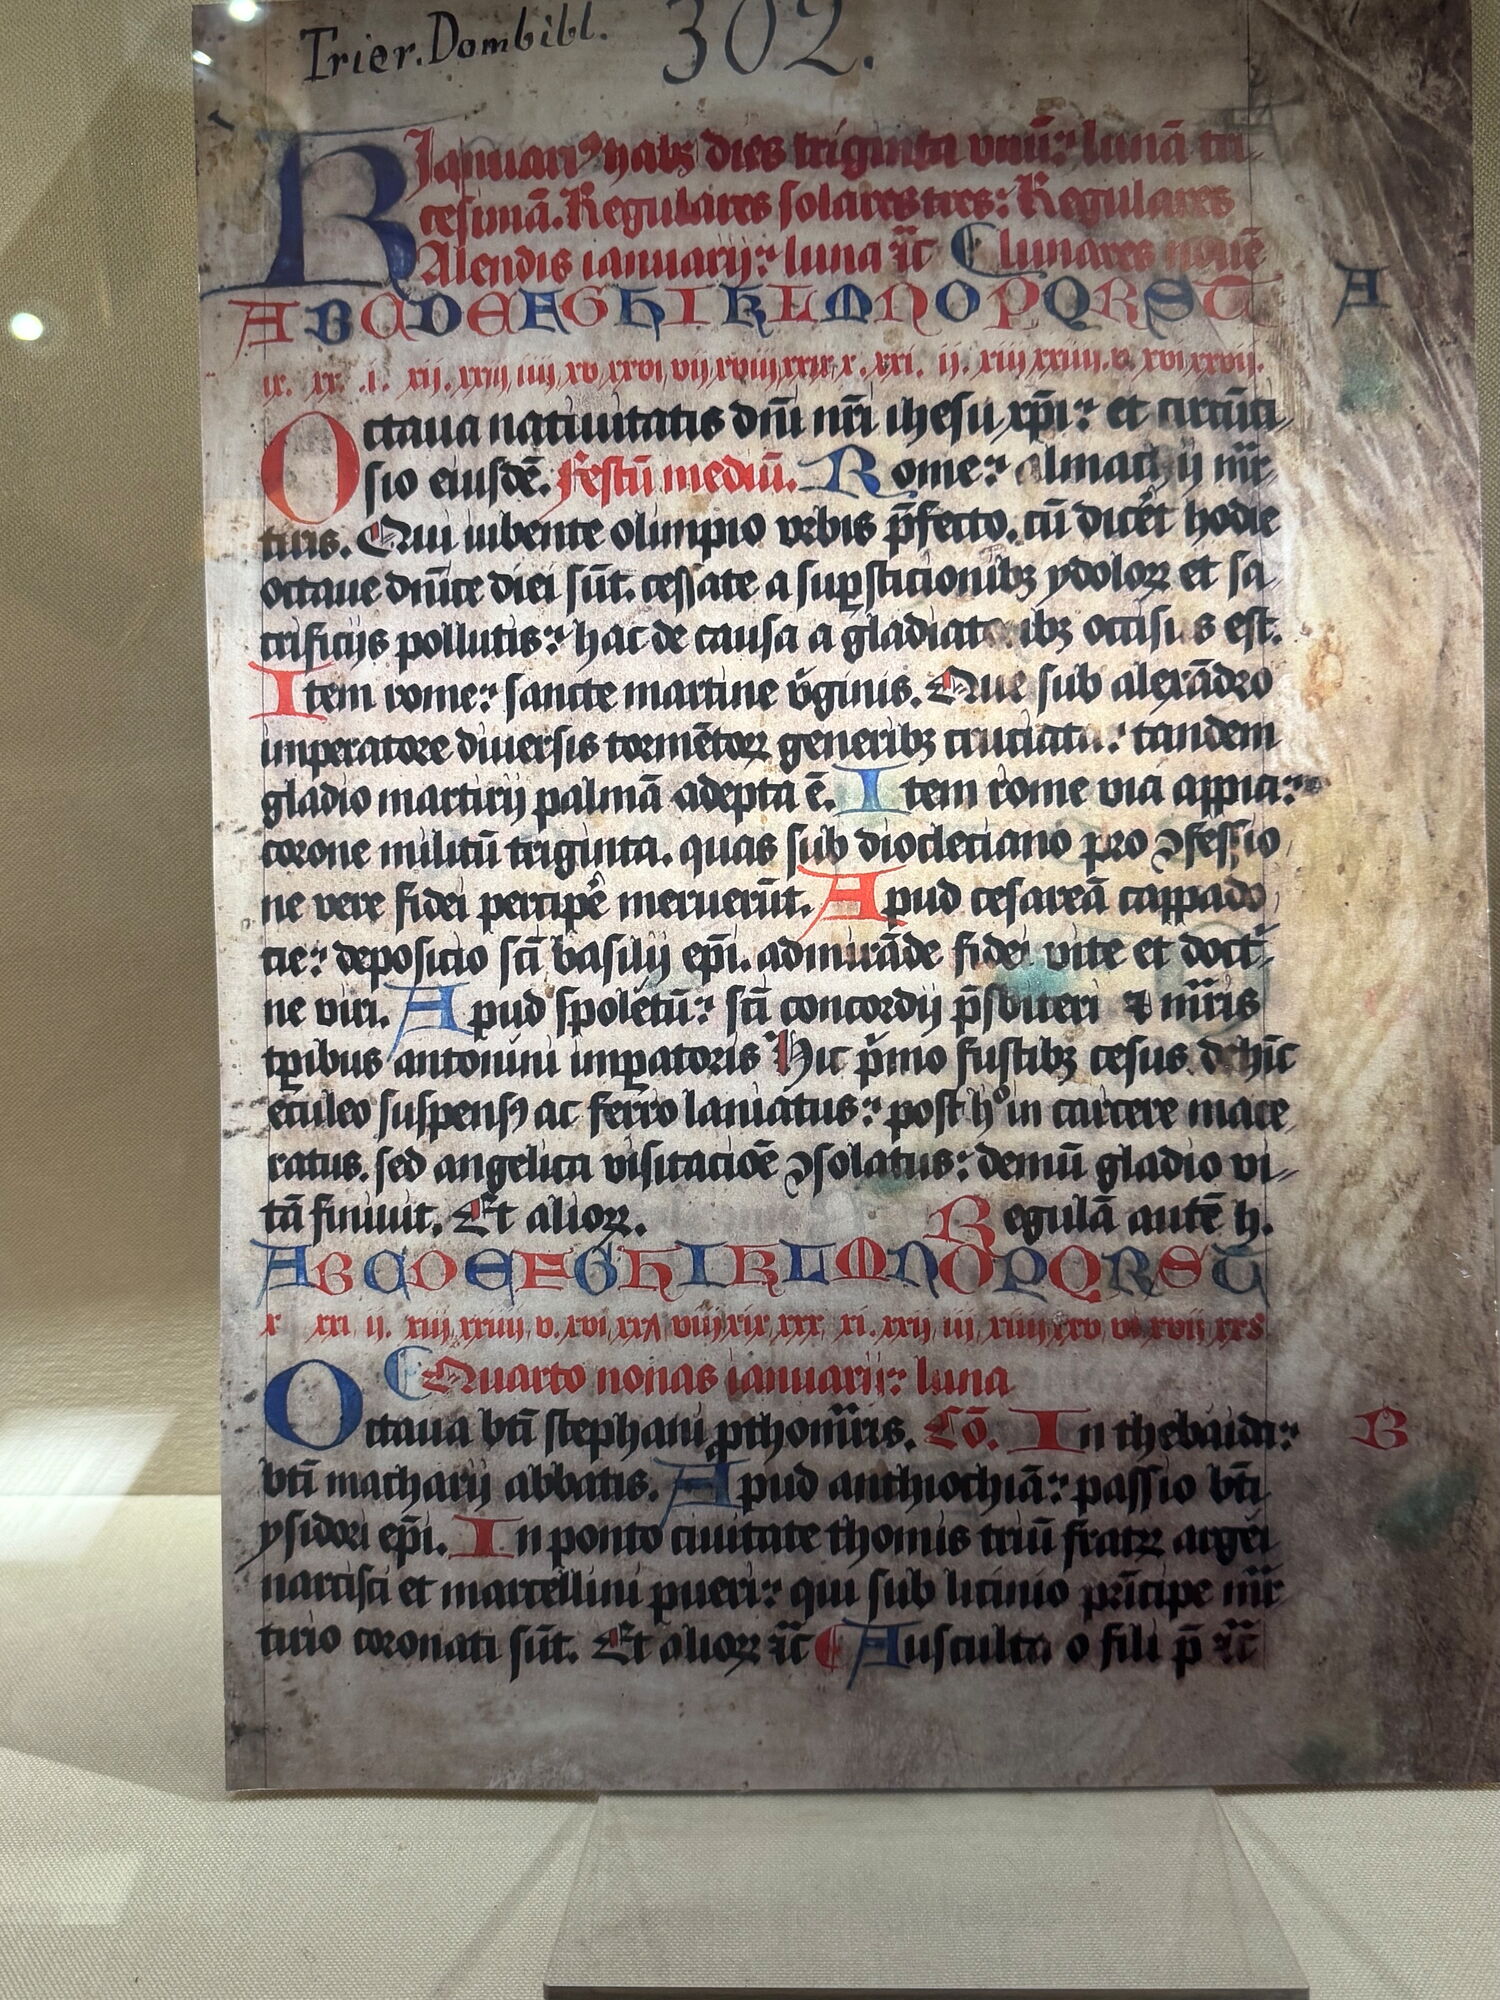 Trier. Dombibl. 302.
Januariꝰ habꝫ dies triginta vnū? lunā tri
cesimā. Regulares solares tres: Regulares
KAlendis ianuarij? luna ⁊c̄ lunares nouē
A B C D E F G H I K L M N O P Q R S T A
ix. xx. i. xij. xxiij iiij xv xxvi vij xviij xxix x. xxi. ij. xiij xxiiij. v. xvi xxvij.
Octaua natiuitatis dn̄i nr̄i ihesu xp̄i? et circūci
sio eiusdē. Festū mediū. Rome? almachij mr̄
tiris. Qui iubente olimpio vrbis p̄fecto. cū dicēt hodie
octaue dn̄ice diei sūt. cessate a suꝑsticionibꝫ ydoloꝝ et sa
crificijs pollutis? hac de causa a gladiatoribꝫ occisus est.
Item rome? sancte martine v̄ginis. Que sub alexādro
imperatore diuersis tormētoꝝ generibꝫ cruciata? tandem
gladio martirij palmā adepta ē. Item rome via appia?
corone militū triginta. quas sub diocletiano pro ↄfessio
ne vere fidei percipe᷑ meruerūt. Apud cesareā cappado
cie? deposicio sc̄i basilij ep̄i. admirāde fidei vite et doct̄
ne viri. Apud spoletū? sc̄i concordij p̄sbiteri ⁊ mr̄is
tꝑibus antonini imꝑatoris Hic p̄mo fustibꝫ cesus dehīc
eculeo suspensꝯ ac ferro laniatus? post hͦ in carcere mace
ratus. sed angelica visitacioē ↄsolatus: demū gladio vi
tā finiuit. Et alioꝝ. Regulā autē h.
A B C D E F G H I K L M N O P Q R S T
x xxi ij. xiij xxiiij v. xvi xxvij viij xix xxx xi. xxij iij xiiij xxv vi xvij xxs
Quarto nonas ianuarij? luna
Octaua bt̄i stephani ꝓthomr̄is. Cō. In thebaida? B
bt̄i macharij abbatis. Apud anthiochiā? passio bt̄i
ysidori ep̄i. In ponto ciuitate thomis triū fratꝝ argei
narcisci et marcellini pueri? qui sub licinio prīcipe mr̄
tirio coronati sūt. Et alioꝝ ⁊c̄ Ausculta o fili p̄ ⁊c̄